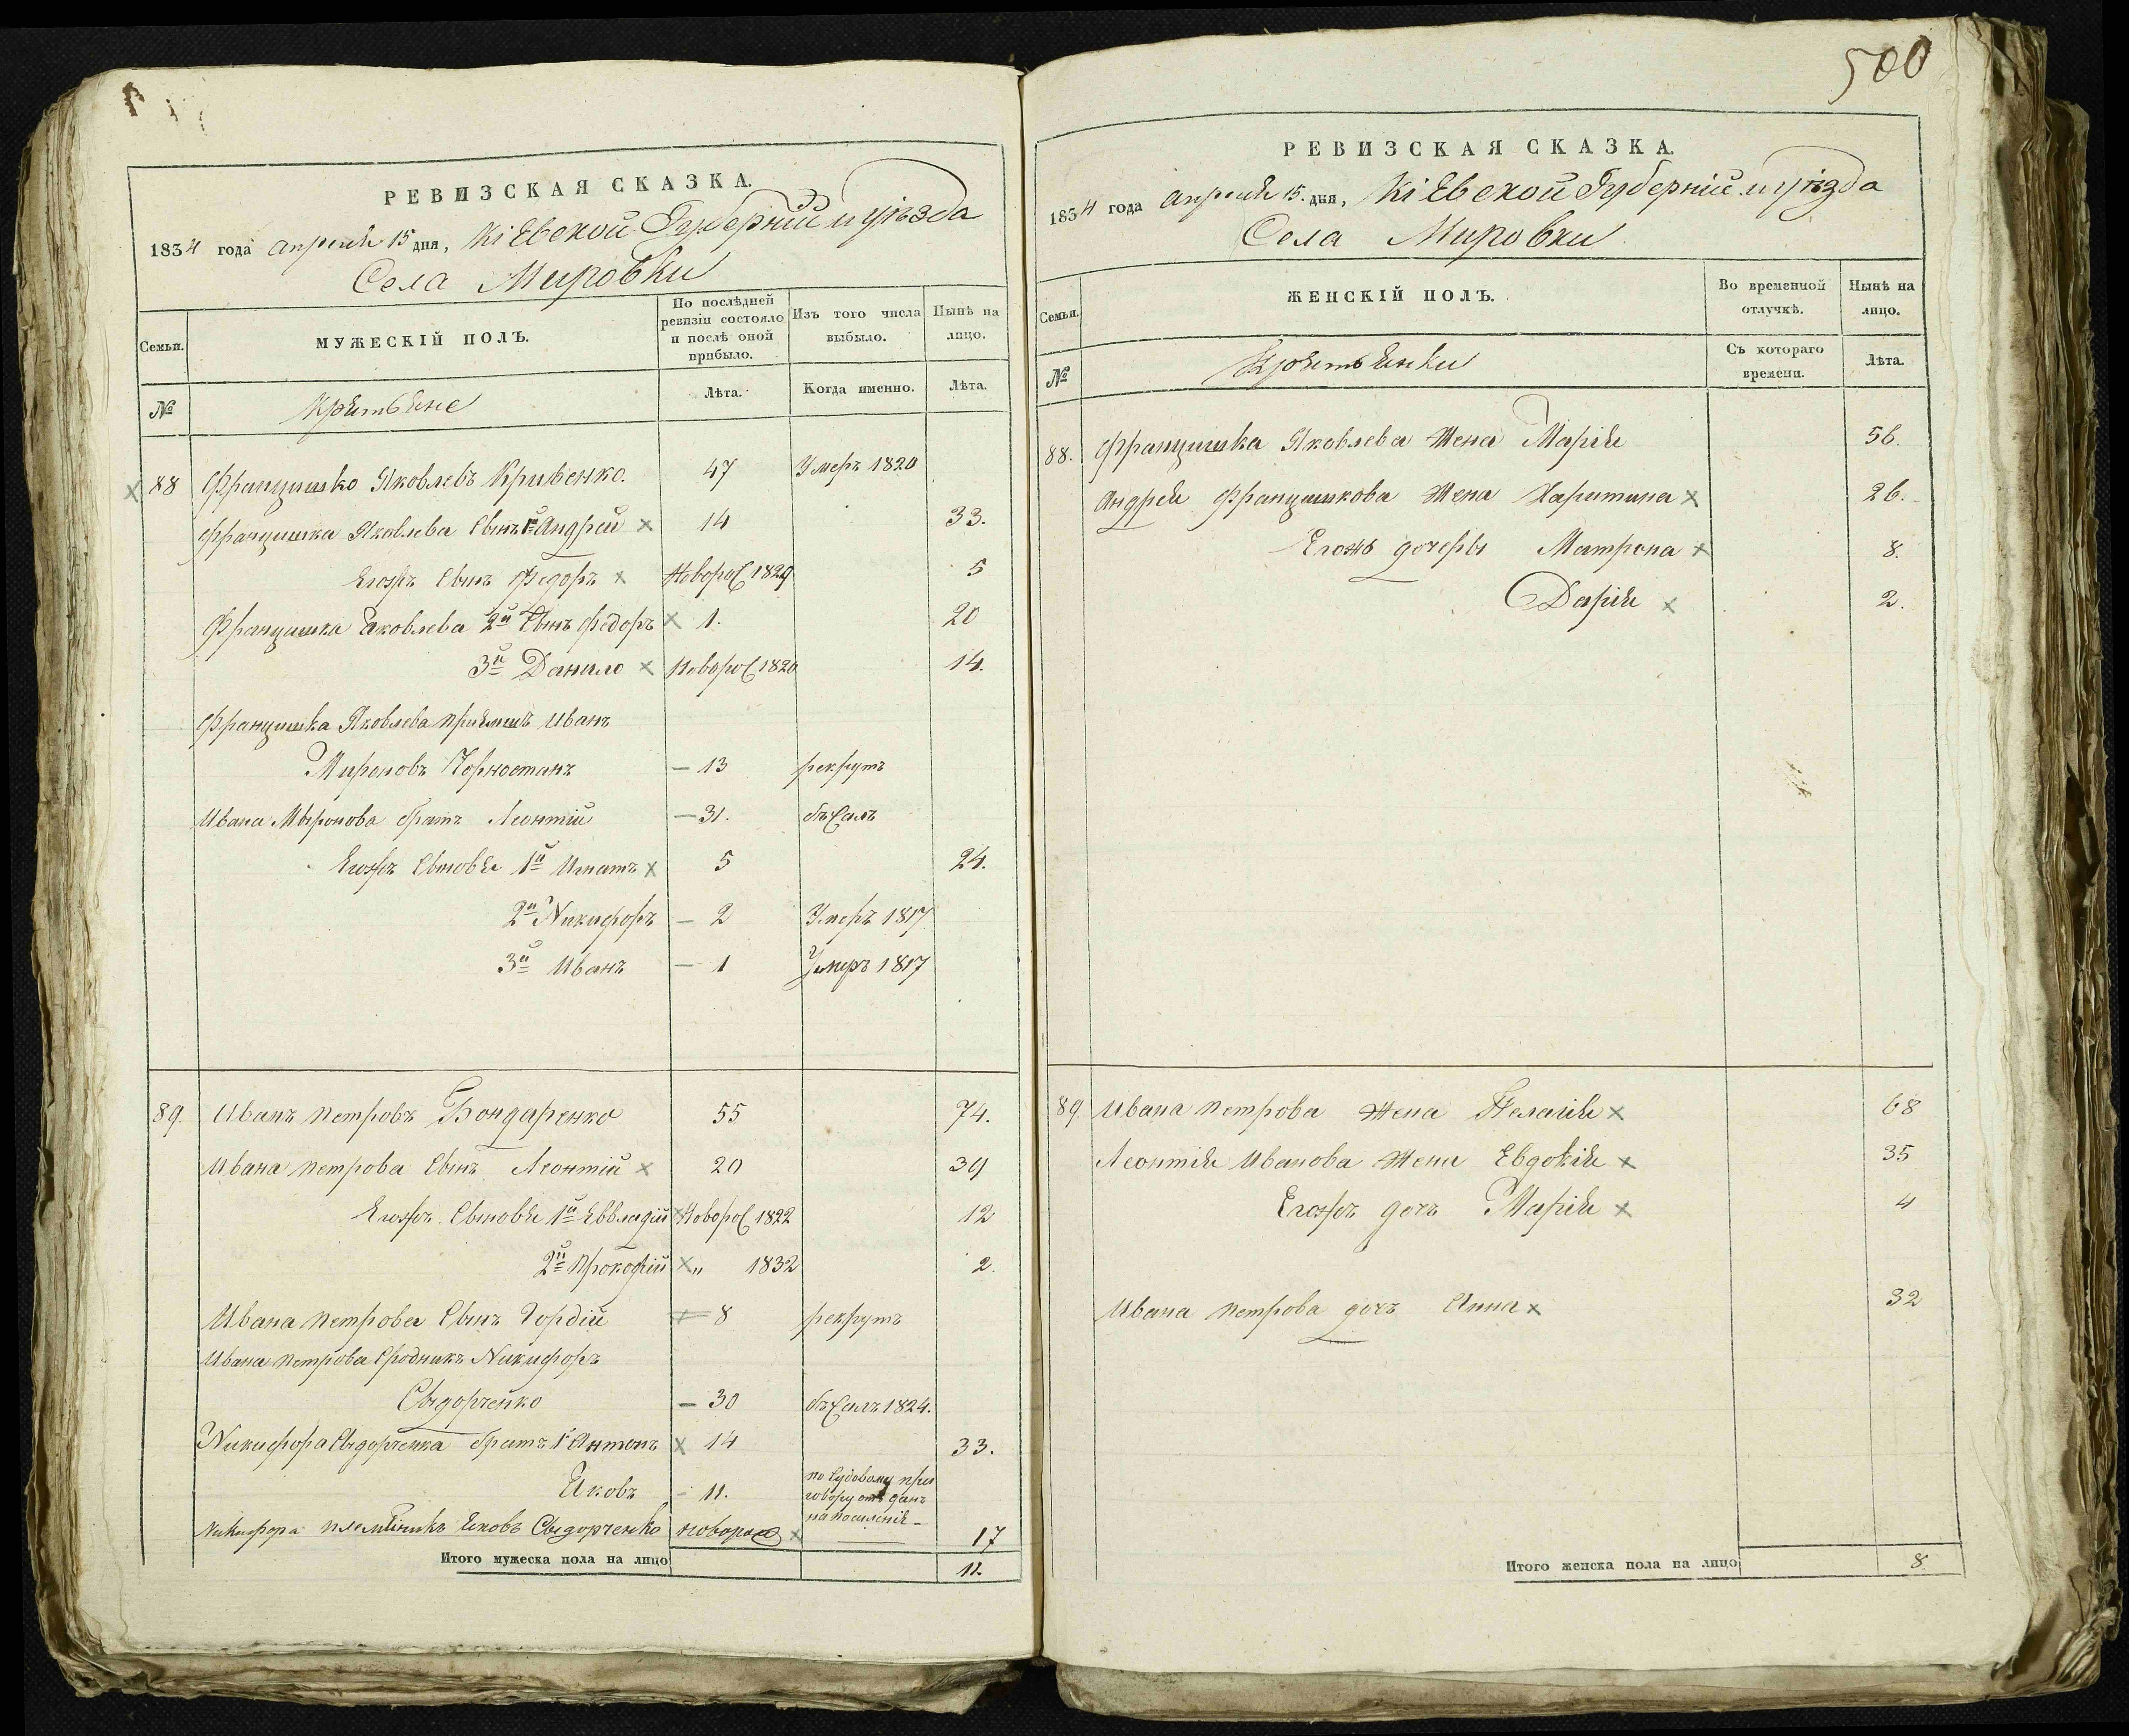 РЕВИЗСКАЯ СКАЗКА.
1834 года апреля 15 дня, Кіевской Губерніи и уѣзда
Села Мировки
Семьи.
МУЖЕСКІЙ ПОЛЪ.
По послѣдней ревизіи состояло и послѣ оной прибыло.
Изъ того числа выбыло.
Нынѣ на лицо.
№
Крѣстьяне
Лѣта.
Когда именно.
Лѣта.
88 Францишко Яковлевъ Кривенко. 47 Умеръ 1820
Францишка Яковлева сынъ 1й Андрей 14 33.
Егожъ сынъ ФедоръНоворо[ 1829 5
Францишка Яковлева 2й сынъ Федоръ 1. 20
3й Данило Новоро[ 1820 14.
Францишка Яковлева приемышъ Иванъ
Мироновъ Горностанъ 13 рекрутъ
Ивана Миронова братъ Леонтій 31. бѣжалъ
Егожъ сыновья 1й Игнатъ 5 24.
2й Никифоръ 2 Умеръ 1817
3й Иванъ 1 Умеръ 1817
89. Иванъ Петровъ Бондаренко 55 74.
Ивана Петрова сынъ Леонтій 20 39
Егожъ сыновья 1й Евлладій Новоро[ 1822 12
2й Прокофій „ 1832 2.
Ивана Петрова сынъ Гордій 8 рекрутъ
Ивана Петрова сродникъ Никифоръ
Сыдорченко 30 бѣжалъ 1824.
Никифора Сыдорченка братъ 1й Антонъ 14 33.
Яковъ 11. по судовому при
говору отъ данъ
на посиленія
Никифора племѣникъ Яковъ Сыдорченко новорож 17
Итого мужеска пола на лицо 11.
500
РЕВИЗСКАЯ СКАЗКА.
1834 года апреля 15. дня, Кіевской Губерніи и уѣзда
Села Мировки
Семьи.
ЖЕНСКІЙ ПОЛЪ.
Во временной отлучкѣ.
Нынѣ на лицо.
№
Крѣстьянки
Съ котораго времени.
Лѣта.
88. Францишка Яковлева жена Марія 56.
Андрея Францишкова жена Харитина 26.
Егожъ дочеры Матрона 8.
Дарія 2.
89. Ивана Петрова жена Пелагія 68
Леонтія Иванова жена Евдокія 35
Егожъ дочъ Марія 4
Ивана Петрова дочъ Анна 32
Итого женска пола на лицо 8